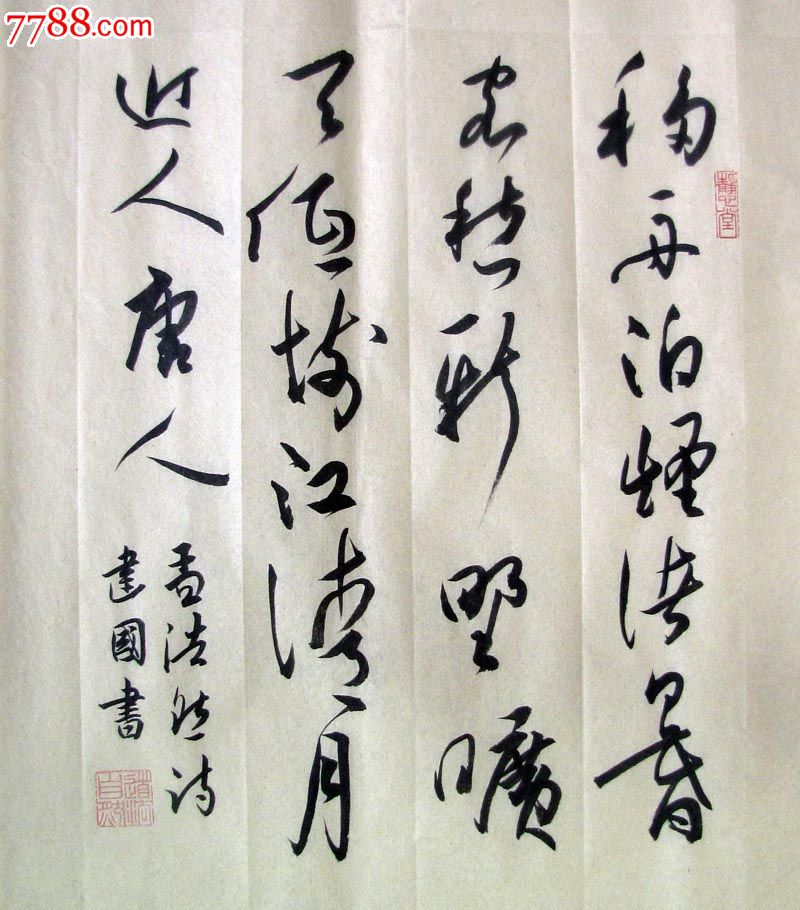 7788.com
移舟泊煙渚日暮
客愁新野曠
天低樹江清月
近人唐人
孟浩然詩
建國書
道法自然